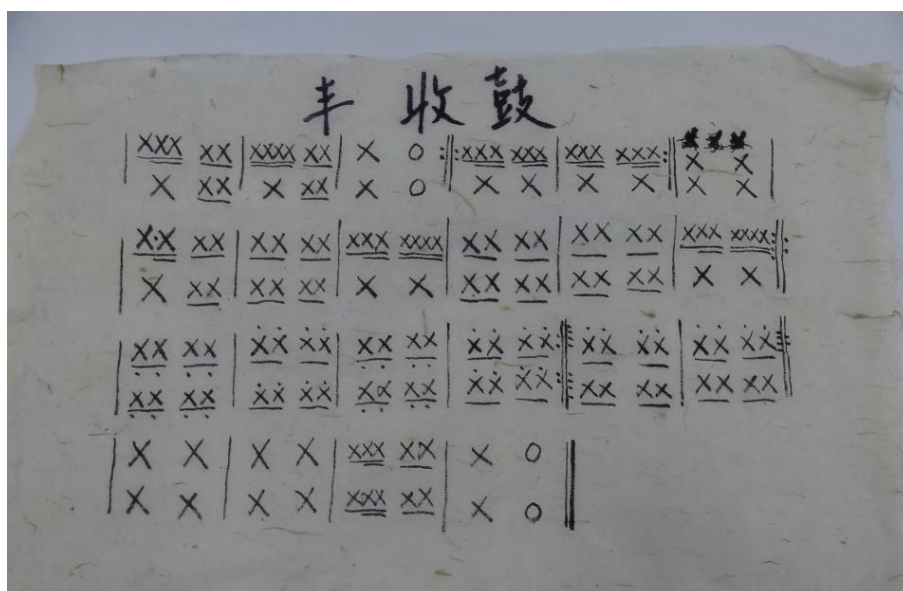 丰收鼓
| XXX XX | XXXX XX | X O :||: XXX XXX | XXX XXX :|| X X |
| X XX | X XX | X O :||: X X | X X :|| X X |
| X·X XX | XX XX | XXX XXXX | XX XX | XX XX | XXX XXXX :||
| X XX | XX XX | X X | XX XX | XX XX | X X :||
| XX XX | XX XX | XX XX | XX XX :||: XX XX | XX XX :||
| XX XX | XX XX | XX XX | XX XX :||: XX XX | XX XX :||
| X X | X X | XXX XX | X O ||
| X X | X X | XXX XX | X O ||